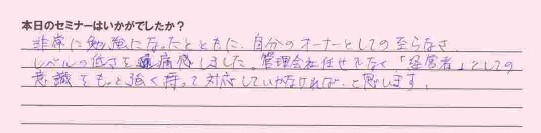 本日のセミナーはいかがでしたか?
非常に勉強になったとともに、自分のオーナーとしての至らなさ、
レベルの低さを痛感しました。管理会社任せでなく「経営者」としての
意識をもっと強く持って対応していかなければ、と思います。